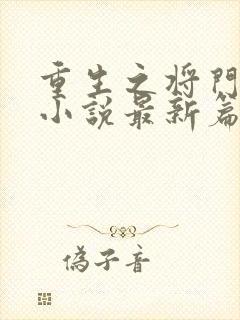 重生之将門
小説最新篇
偽子音